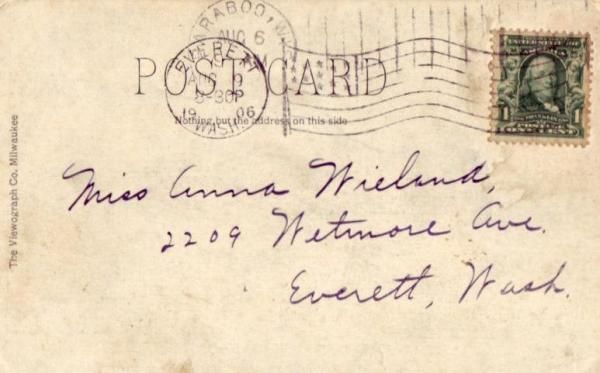 BARABOO, WIS.
AUG 6
POST CARD
EVERETT
AUG 9
8-30P
1906
WASH.
Nothing but the address on this side
1
ONE CENT
The Viewograph Co. Milwaukee
Miss Anna Wieland,
2209 Wetmore Ave.
Everett, Wash.